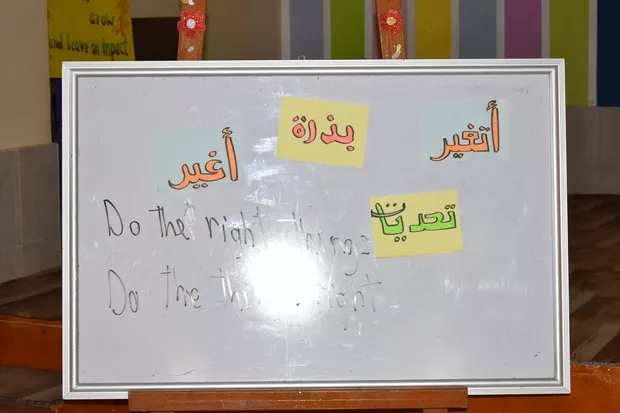 Grow
and leave an impact
أتغير
بذرة
أغير
تحديات
Do the right things
Do the thi right